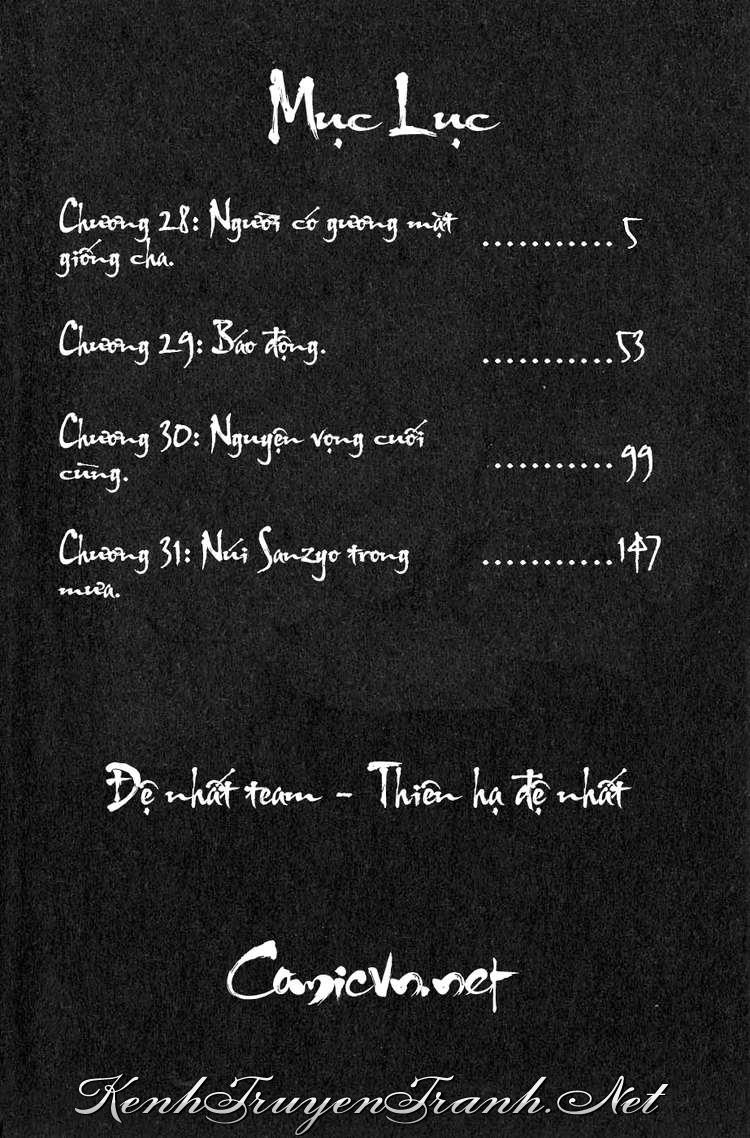 Mục Lục
Chương 28: Người có gương mặt ........... 5
giống cha.
Chương 29: Báo động. ...........53
Chương 30: Nguyện vọng cuối .......... 99
cùng.
Chương 31: Núi Sanzyo trong ...........147
mưa.
Đệ nhất team - Thiên hạ đệ nhất
Comicvn.net
KenhTruyenTranh.Net